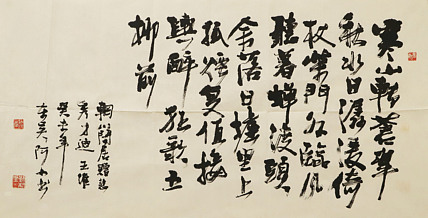 寒山轉蒼翠
秋水日潺湲倚
杖柴門外臨風
聽暮蟬渡頭
余落日墟里上
孤烟复值接
輿醉狂歌五
柳前
輞川閒居贈裴
秀才迪 王維
癸未年
东吴阿书